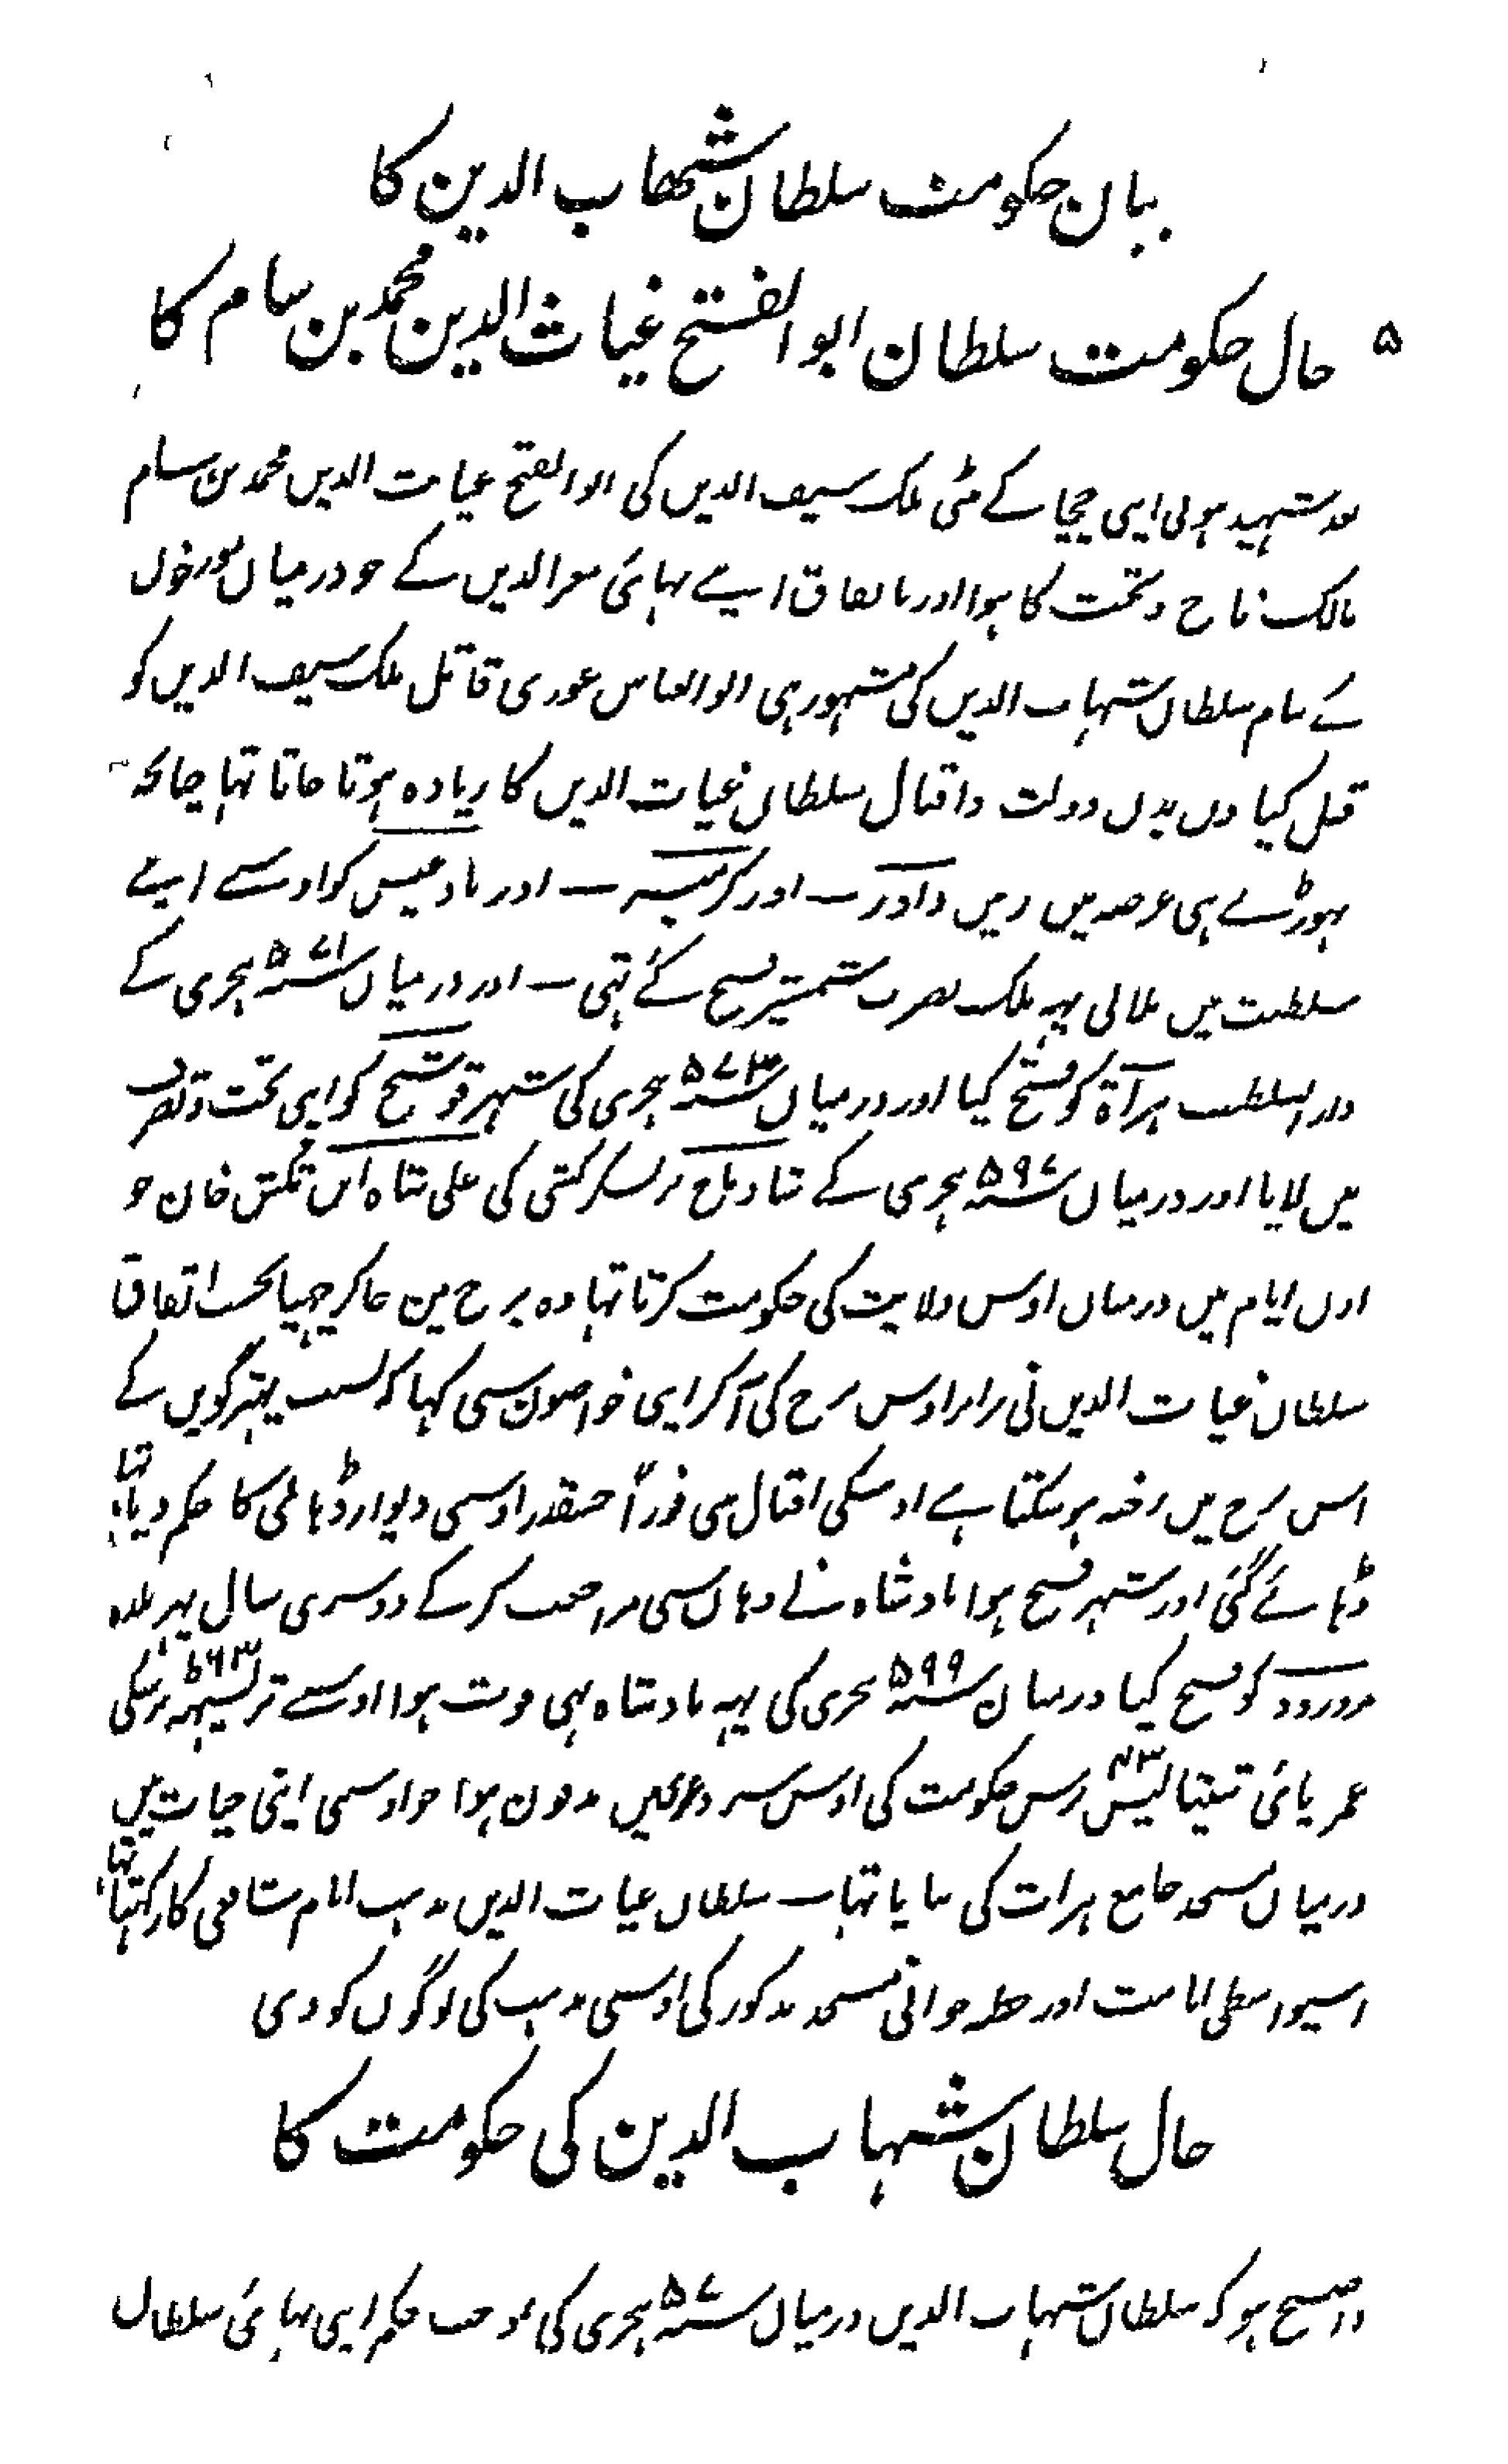 بیان حکومت سلطان شھاب الدین کا
۵ حال حکومت سلطان ابو الفتح غیاث الدین محمد بن سام کا
بعد شہید ہونی اپنی چچا کے بیٹی ملک سیف الدین کی ابو الفتح غیاث الدین محمد بن سام
مالک تاج و تخت کا ہوا اور باتفاق اپنے بہائی معز الدین کے جو درمیان مورخون
کے بنام سلطان شہاب الدین کی مشہور ہی ابو العباس غوری قاتل ملک سیف الدین کو
قتل کیا دن بدن دولت و اقبال سلطان غیاث الدین کا زیادہ ہوتا جاتا تہا چنانچہ
تہوڑے ہی عرصہ میں زمین داور — اور کرمیہ — اور بادغیس کو اوسے اپنے
سلطنت میں ملا لی یہہ ملک بضرب شمشیر فتح کئے تہی — اور درمیان سنہ ۵۷۱ ہجری کے
دار السلطنت ہراۃ کو فتح کیا اور درمیان سنہ ۵۷۳ ہجری کی شہر قوشنج کو اپنی تحت و تصرف
میں لایا اور درمیان سنہ ۵۹۷ ہجری کے شادباخ پر لشکر کشی کی علی شاہ ابن تکش خان جو
اون ایام میں درمیان اوس ولایت کی حکومت کرتا تہا وہ برج مین جا کر چہپا بحسب اتفاق
سلطان غیاث الدین نی برابر اوس برج کی آ کر اپنی خواصون سی کہا کہ بسبب پتہر گوین کے
اس برج میں رخنہ ہو سکتا ہے اوسکی اقبال سی فوراً جسقدر اوسی دیوار ڈہانی کا حکم دیا تہا
ڈہائے گئی اور شہر فتح ہوا بادشاہ نے وہان سی مراجعت کر کے دوسری سال پہر بلدہ
مرورود کو فتح کیا درمیان سنہ ۵۹۹ ہجری کی یہہ بادشاہ بہی فوت ہوا اوسے ترسیہہ ۶۳ برسکی
عمر پائی تینتالیس ۴۳ برس حکومت کی اوس سرد مدفون ہوا جو اوسی اپنی حیات میں
درمیان مسجد جامع ہرات کی بنایا تہا — سلطان غیاث الدین مذہب امام شافعی کا رکہتا تہا
اسیواسطی امامت اور خطبہ خوانی مسجد مذکور کی اوسی مذہب کی لوگوں کو دی
حال سلطان شہاب الدین کی حکومت کا
واضح ہو کہ سلطان شہاب الدین درمیان سنہ ۵۷ ہجری کی بموجب حکم اپنی بہائی سلطان